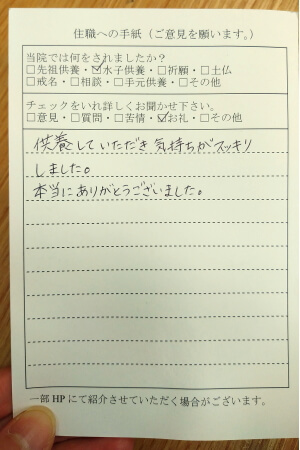 住職への手紙(ご意見を願います。)
当院では何をされましたか?
□先祖供養・☑水子供養・□祈願・□土仏
□戒名・□相談・□手元供養・□その他
チェックをいれ詳しくお聞かせ下さい。
□意見・□質問・□苦情・☑お礼・□その他
供養していただき気持ちがスッキリ
しました。
本当にありがとうございました。
一部HPにて紹介させていただく場合がございます。